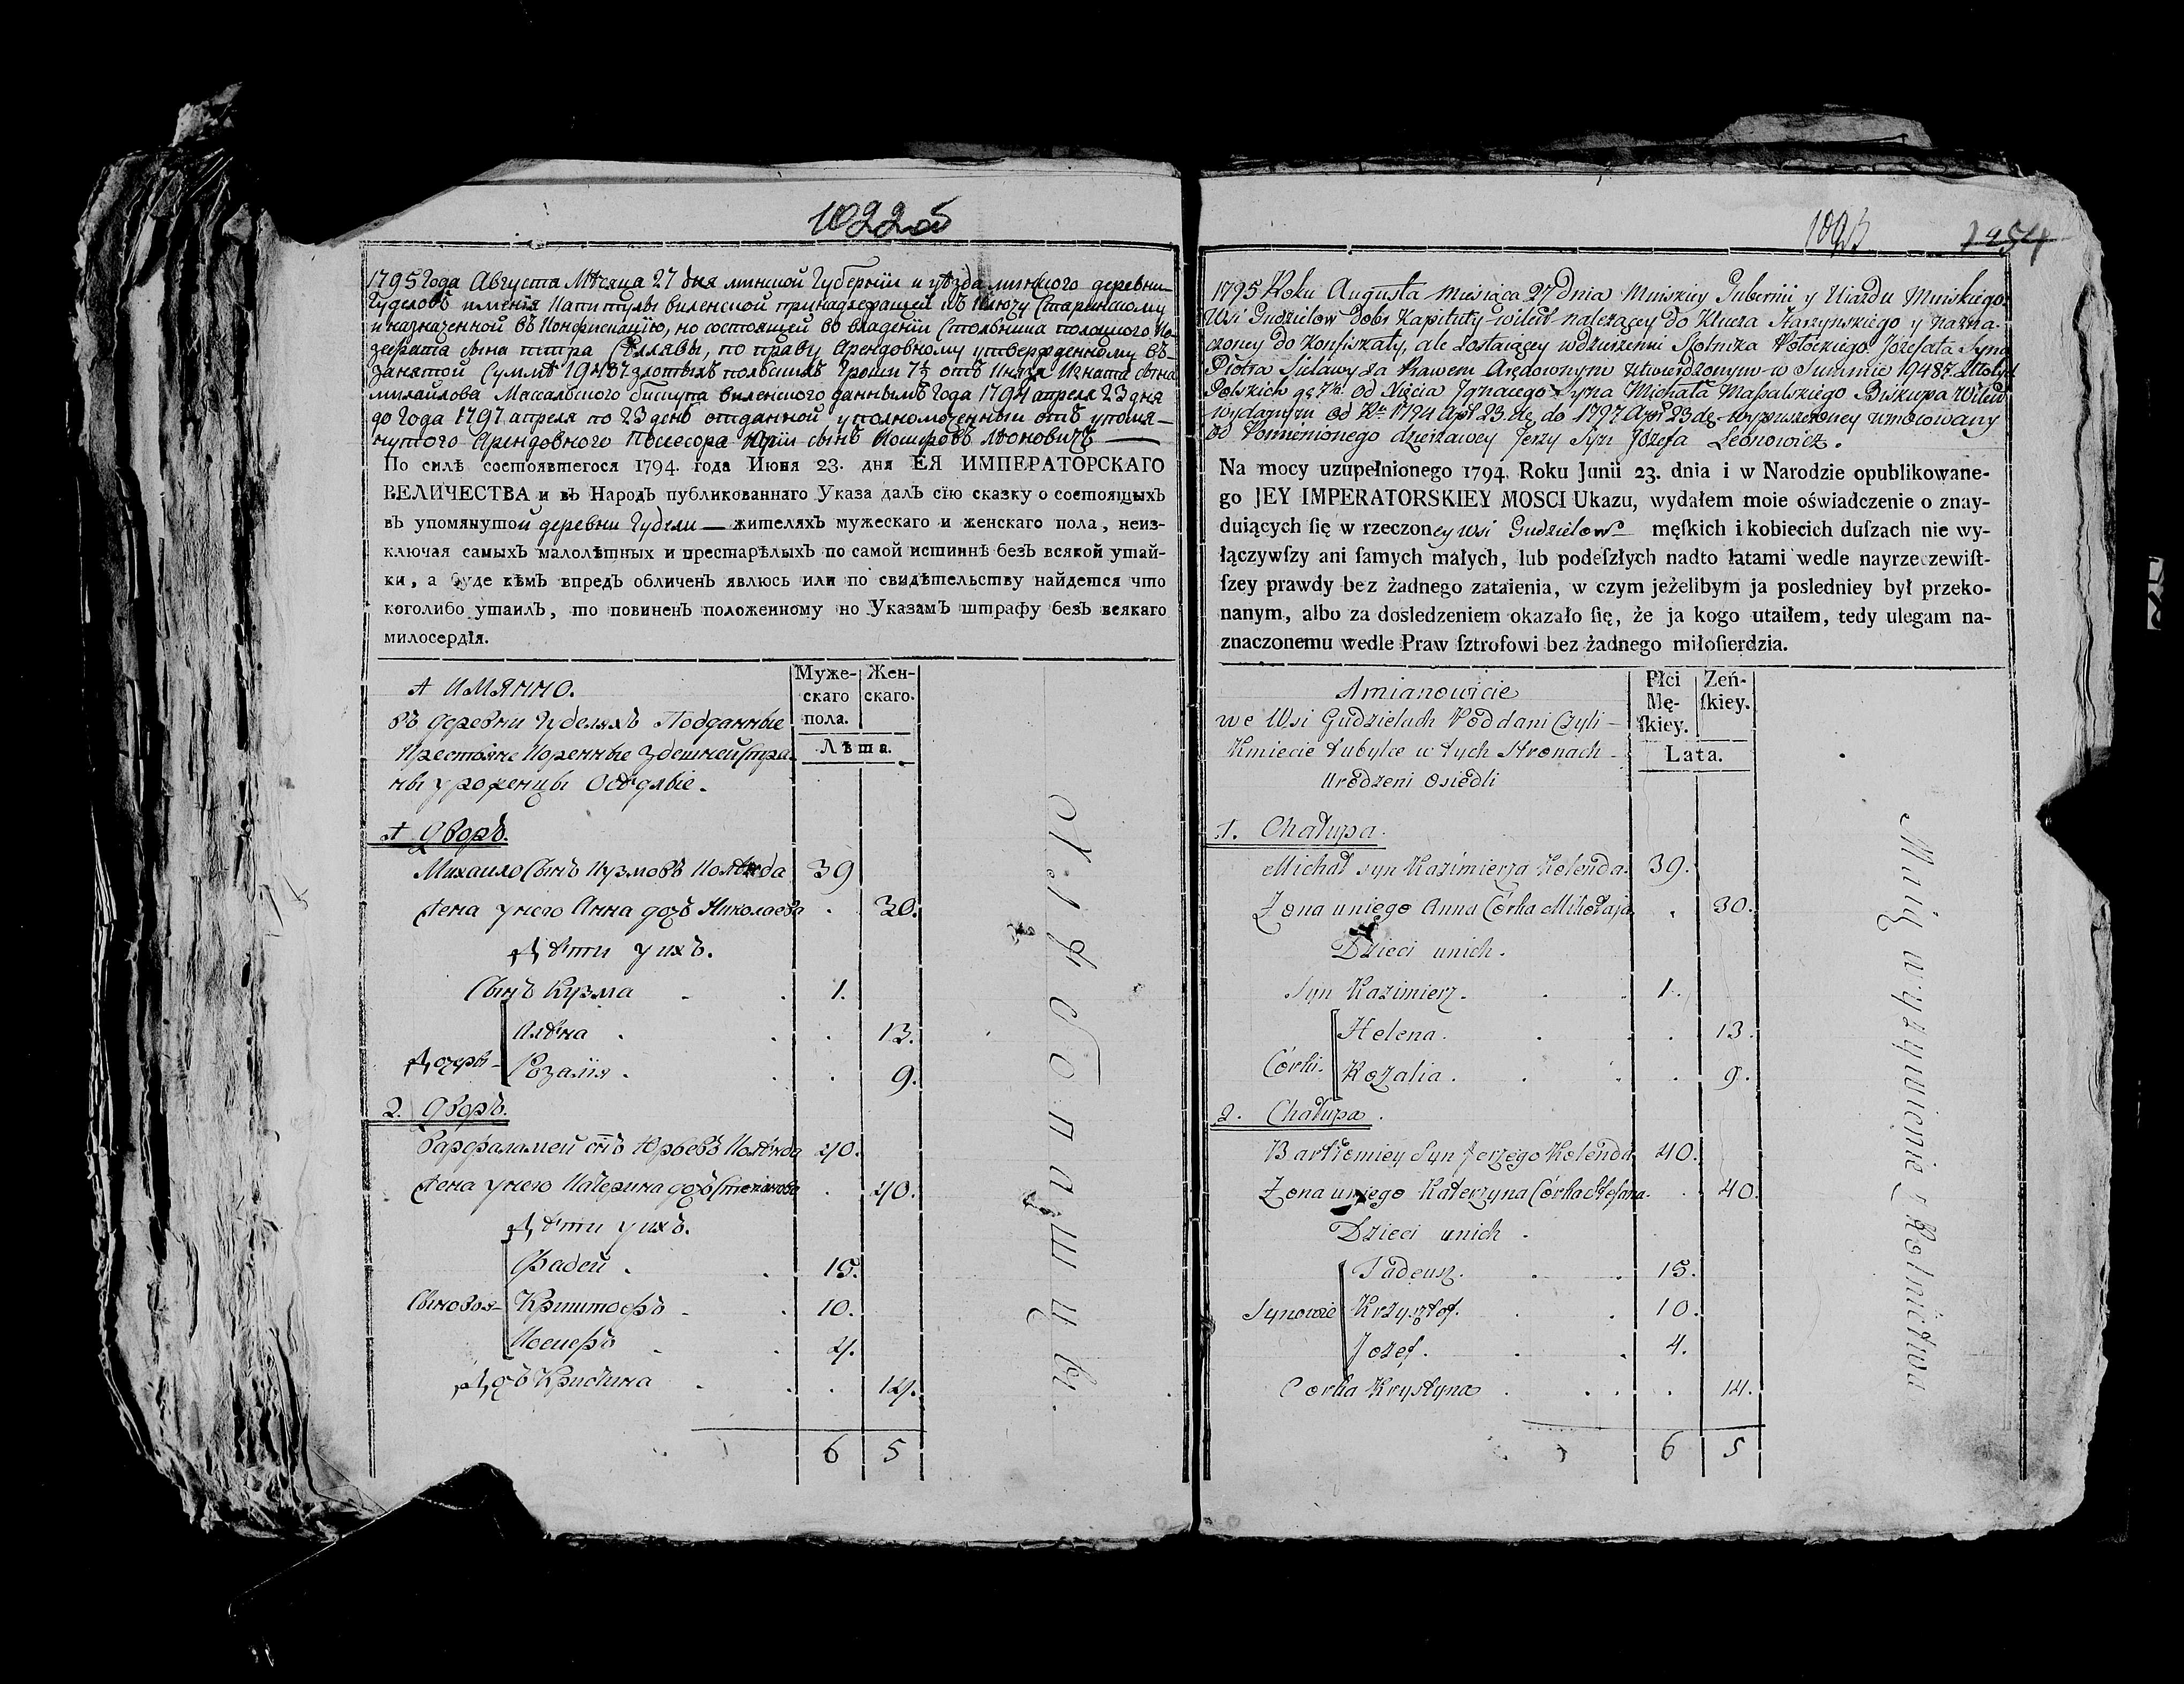 1022об
1795 Года Августа Мѣсяца 27 дня минской Губерніи и уѣзда минского деревни
Гуделовъ имѣнія Капитулы виленской принадлежащей къ Ключу Старинскому
и назначенной въ Конфискацію, но состоящей во владеніи Стольника полоцкого Іо-
зефата сына петра Селлявы, по праву Арендовному утвержденному въ
занятой Суммѣ 19487 злотыхъ польскихъ Гроши 7½ отъ Князя Игната сына
михайлова Массальского бискупа виленского даннымъ Года 1794 апреля 23 дня
до Года 1797 апреля по 23 день отданной уполномоченный отъ упомя-
нутого Арендовного Посессора Юрій сынъ Иосифовъ Леоновичъ
По силѣ состоявшегося 1794. года Июня 23. дня ЕЯ ИМПЕРАТОРСКАГО
ВЕЛИЧЕСТВА и въ Народъ публикованнаго Указа далъ сїю сказку о состоящыхъ
въ упомянутой деревни Гудели — жителяхъ мужескаго и женскаго пола, неиз-
ключая самыхъ малолѣтныхъ и престарѣлыхъ по самой истиннѣ безъ всякой утай-
ки, а буде кѣмъ впредъ обличенъ явлюсь или по свидѣтельству найдется что
коголибо утаилъ, то повиненъ положенному по Указамъ штрафу безъ всякаго
милосердїя.
А ИМЯННО.
въ деревни Гуделяхъ Подданные
Крестьяне Коренные Здешней Стра-
ны уроженцы Осѣдлые.
Муже-
скаго
пола.
Жен-
скаго.
Лѣта.
1 Дворъ.
Михаило Сынъ Кузмовъ Колѣнда 39
Жена у него Анна дочъ Николаева 30.
Дѣти у ихъ.
Сынъ Кузма 1.
Алѣна 13.
Дочери
Розалія 9.
2. Дворъ.
Варфаламей снъ Юрьевъ Колѣнда 40.
Жена у него Катерина дочъ Степанова 40.
Дѣти у ихъ.
Фадей 15.
Сыновья Криштофъ 10.
Иосифъ 4.
Дочъ Кристина 14.
6 5
Хлѣбопашцы.
1023
1254
1795 Roku Augusta Miesiąca 27 Dnia Minskiey Gubernii y Uiazdu Minskiego
Wsi Gudzielow Dobr Kapituły wileń należącey do Klucza Starzynskiego y nazna-
czoney do Konfiskaty, ale zostaiącey w dzierzeniu Stolnika Połockiego Jozefata Syna
Piotra Sielawy za Prawem Arędownym utwierdzonym w Summie 19487 Złotych
Polskich gr 7½ od Xięcia Ignacego Syna Michała Massalskiego Biskupa Wileń
wydanym od Rku 1794 Apr 23. dę do 1797 Apr 23 dę wypuszczoney umocowany
od Pomienionego dzierzawcy Jerzy Syn Jozefa Leonowicz.
Na mocy uzupełnionego 1794. Roku Junii 23. dnia i w Narodzie opublikowane-
go JEY IMPERATORSKIEY MOSCI Ukazu, wydałem moie oświadczenie o znay-
duiących ſię w rzeczoney wsi Gudzielow męſkich i kobiecich duſzach nie wy-
łączywſzy ani ſamych małych, lub podeſzłych nadto latami wedle nayrzeczewiſt-
ſzey prawdy bez żadnego zataienia, w czym jeżelibym ja posledniey był przeko-
nanym, albo za dosledzeniem okazało ſię, że ja kogo utaiłem, tedy ulegam na-
znaczonemu wedle Praw ſztrofowi bez żadnego miłoſierdzia.
Amianowicie
we Wsi Gudzielach Poddani Czyli
Kmiecie tubylce w tych Stronach
Urodzeni Osiedli
Płci
Mę-
ſkiey.
Zeń-
ſkiey.
Lata.
1. Chałupa.
Michał syn Kazimierza Kolenda. 39.
Zona u niego Anna Córka Mikołaja 30.
Dzieci unich.
Syn Kazimierz. 1.
Helena. 13.
Córki.
Rozalia. 9.
2. Chałupa.
Bartłomiey Syn Jerzego Kolenda 40.
Zona u niego Katerzyna Córka Stefana. 40.
Dzieci unich.
Tadeusz. 15.
Synowie Krzysztof. 10.
Jozef. 4.
Corka Krystyna 14.
6 5
Maią wyzywienie z Rolnictwa